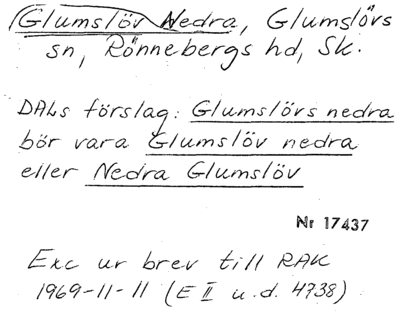 Glumslöv Nedra, Glumslövs
sn, Rönnebergs hd, Sk.
DALs förslag: Glumslövs nedra
bör vara Glumslöv nedra
eller Nedra Glumslöv
Nr 17437
Exc ur brev till RAK
1969-11-11 (E II u.d. 4738)